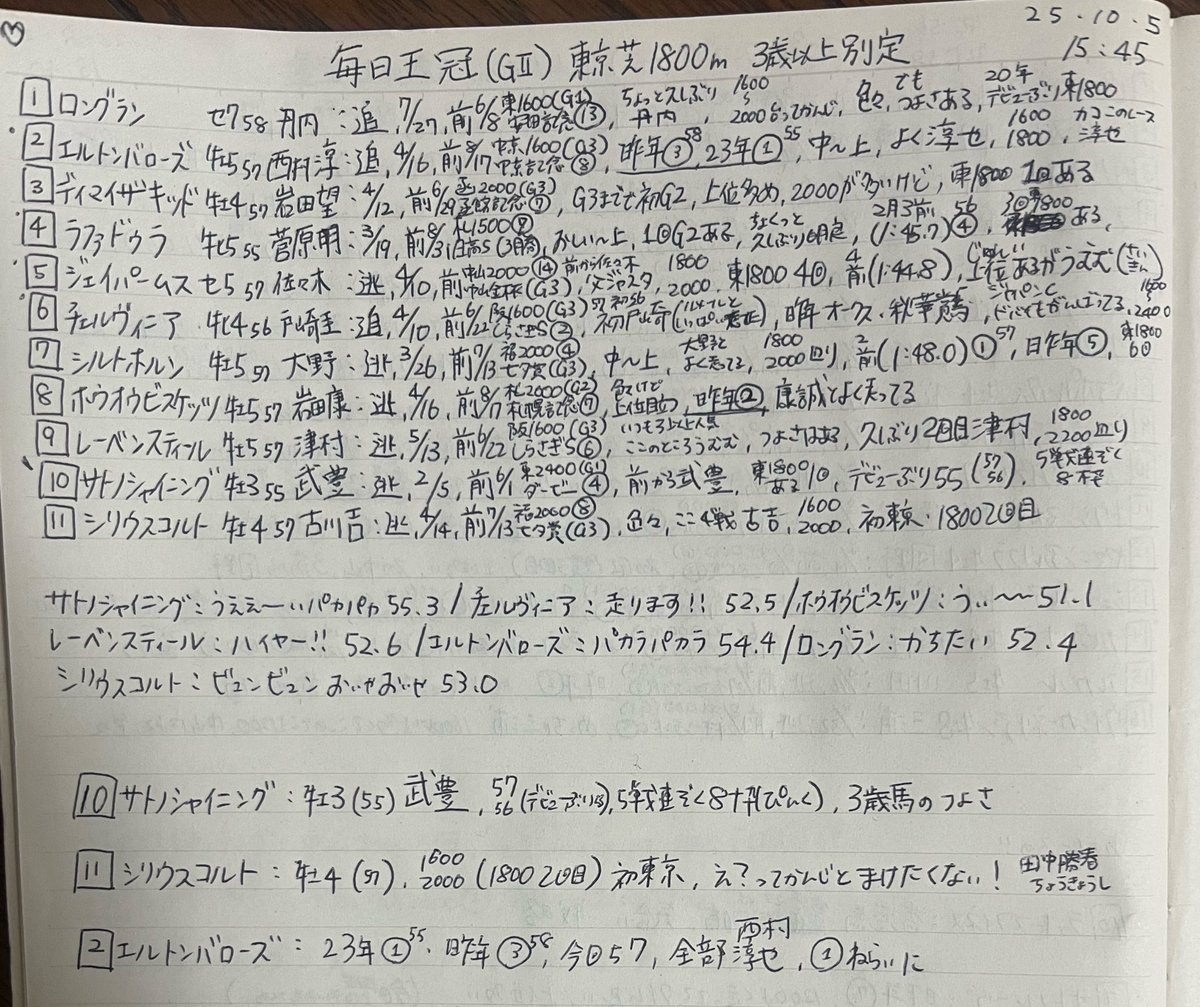 25.10.5
毎日王冠(GⅡ) 東京芝1800m 3歳以上別定 15:45
1 ロングラン セ7 58 丹内:追, 7/27, 前6/8 東1600(G1) 安田記念⑬, ちょっと久しぶり丹内, 1600 2000台ってかんじ, 色々、でもつよさある, 20年デビューぶり東1800
2 エルトンバローズ 牡5 57 西村淳:追, 4/16, 前8/17 中京1600(G3) 中京記念⑧, 昨年③58, 23年①55, 中〜上, よく淳也, 1600 1800, カコこのレース淳也
3 ディマイザキッド 牡4 57 岩田望:4/12, 前6/29 函2000(G3) 函館記念⑦, G3までで初G2, 上位多め, 2000が多いけど, 東1800 1回ある
4 ラファドゥラ 牝5 55 菅原明:3/19, 前8/31 札1500⑨ 日高S(3勝), おしい〜上, 1回G2ある, ちょくっと久しぶり明良, 2月3前 56 (1:45.7)④, 3回東1800ある,
5 ジェイパームス セ5 57 佐々木:逃, 4/10, 前 中山2000⑭ 中山金杯(G3), 前から佐々木 父ジャスタ, 1800 2000, 東1800 4回, 4前(1:44.8), 上位あるがうえむ(さいきん)
6 チェルヴィニア 牝4 56 戸崎圭:追, 4/10, 前6/22 阪1600(G3) しらさぎS②, 57 初56 初戸崎, 昨年オークス・秋華賞, ジャパンC ドバイでもがんばってる, 1600 2400
7 シルトホルン 牡5 57 大野:逃, 3/26, 前7/13 福2000④ 七夕賞(G3), 中〜上, 大野とよく走ってる, 1800 2000辺り, 2前(1:48.0)①57, 昨年⑤, 東1800 6回
8 ホウオウビスケッツ 牡5 57 岩田康:逃, 4/16, 前8/17 札2000(G2) 札幌記念⑦, 色々だけど上位目立つ, 昨年②, 康誠とよく走ってる
9 レーベンスティール 牡5 57 津村:逃, 5/13, 前6/22 阪1600(G3) しらさぎS⑥, いつも3以上人気 ここのところうえむ, つよさはある, 久しぶり2回目津村, 1800 2200辺り
10 サトノシャイニング 牡3 55 武豊:逃, 2/5, 前6/1 東2400(G1) ダービー④, 前から武豊, 東1800 1回ある, デビューぶり55(57 56), 5戦連ぞく8枠
11 シリウスコルト 牡4 57 古川吉:逃, 4/14, 前7/13 福2000⑧ 七夕賞(G3), 色々, ここ4戦 古吉, 1600 2000, 初東京・1800 2回目
サトノシャイニング:うええーいパカパカ 55.3/チェルヴィニア:走ります!! 52.5/ホウオウビスケッツ:うぃ〜〜51.1
レーベンスティール:ハイヤー!! 52.6/エルトンバローズ:パカラパカラ 54.4/ロングラン:かちたい 52.4
シリウスコルト:ビュンビュン おいやおいせ 53.0
10 サトノシャイニング:牡3(55) 武豊, 57 56(デビューぶり55), 5戦連ぞく8枠(ぴんく), 3歳馬のつよさ
11 シリウスコルト:牡4(57), 1600 2000(1800 2回目) 初東京, え?ってかんじとまけたくない! 田中勝春ちょうきょうし
2 エルトンバローズ:23年①55・昨年③58, 今回57, 全部西村淳也, ①ねらいに